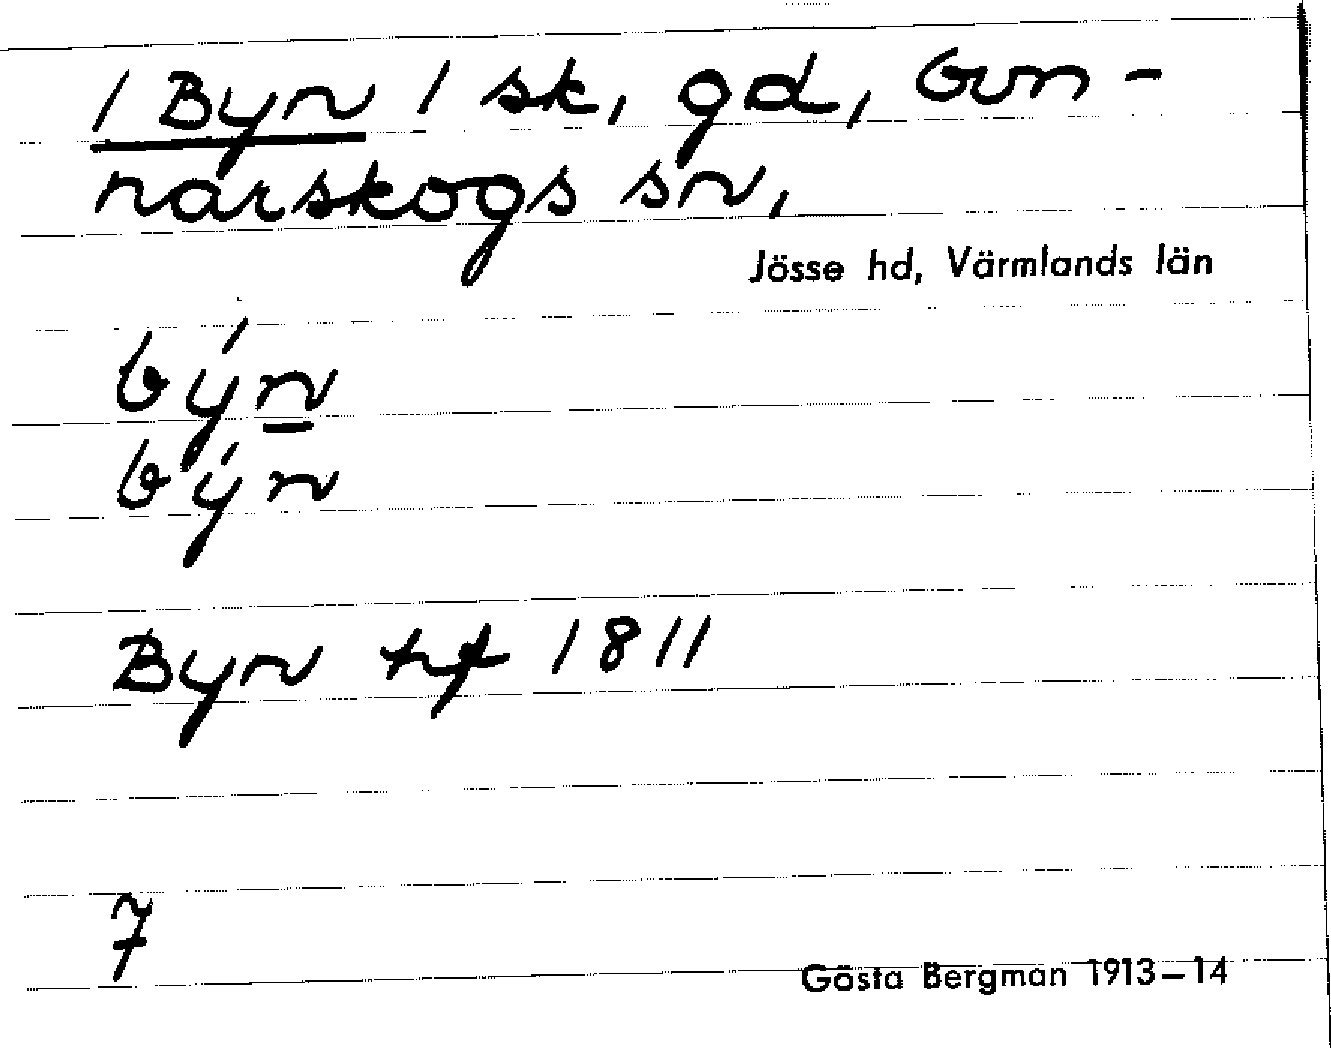 1 Byn 1 sk, gd, Gun-
narskogs sn,
Jösse hd, Värmlands län
býn
býn
Byn hf 1811
7
Gösta Bergman 1913–14